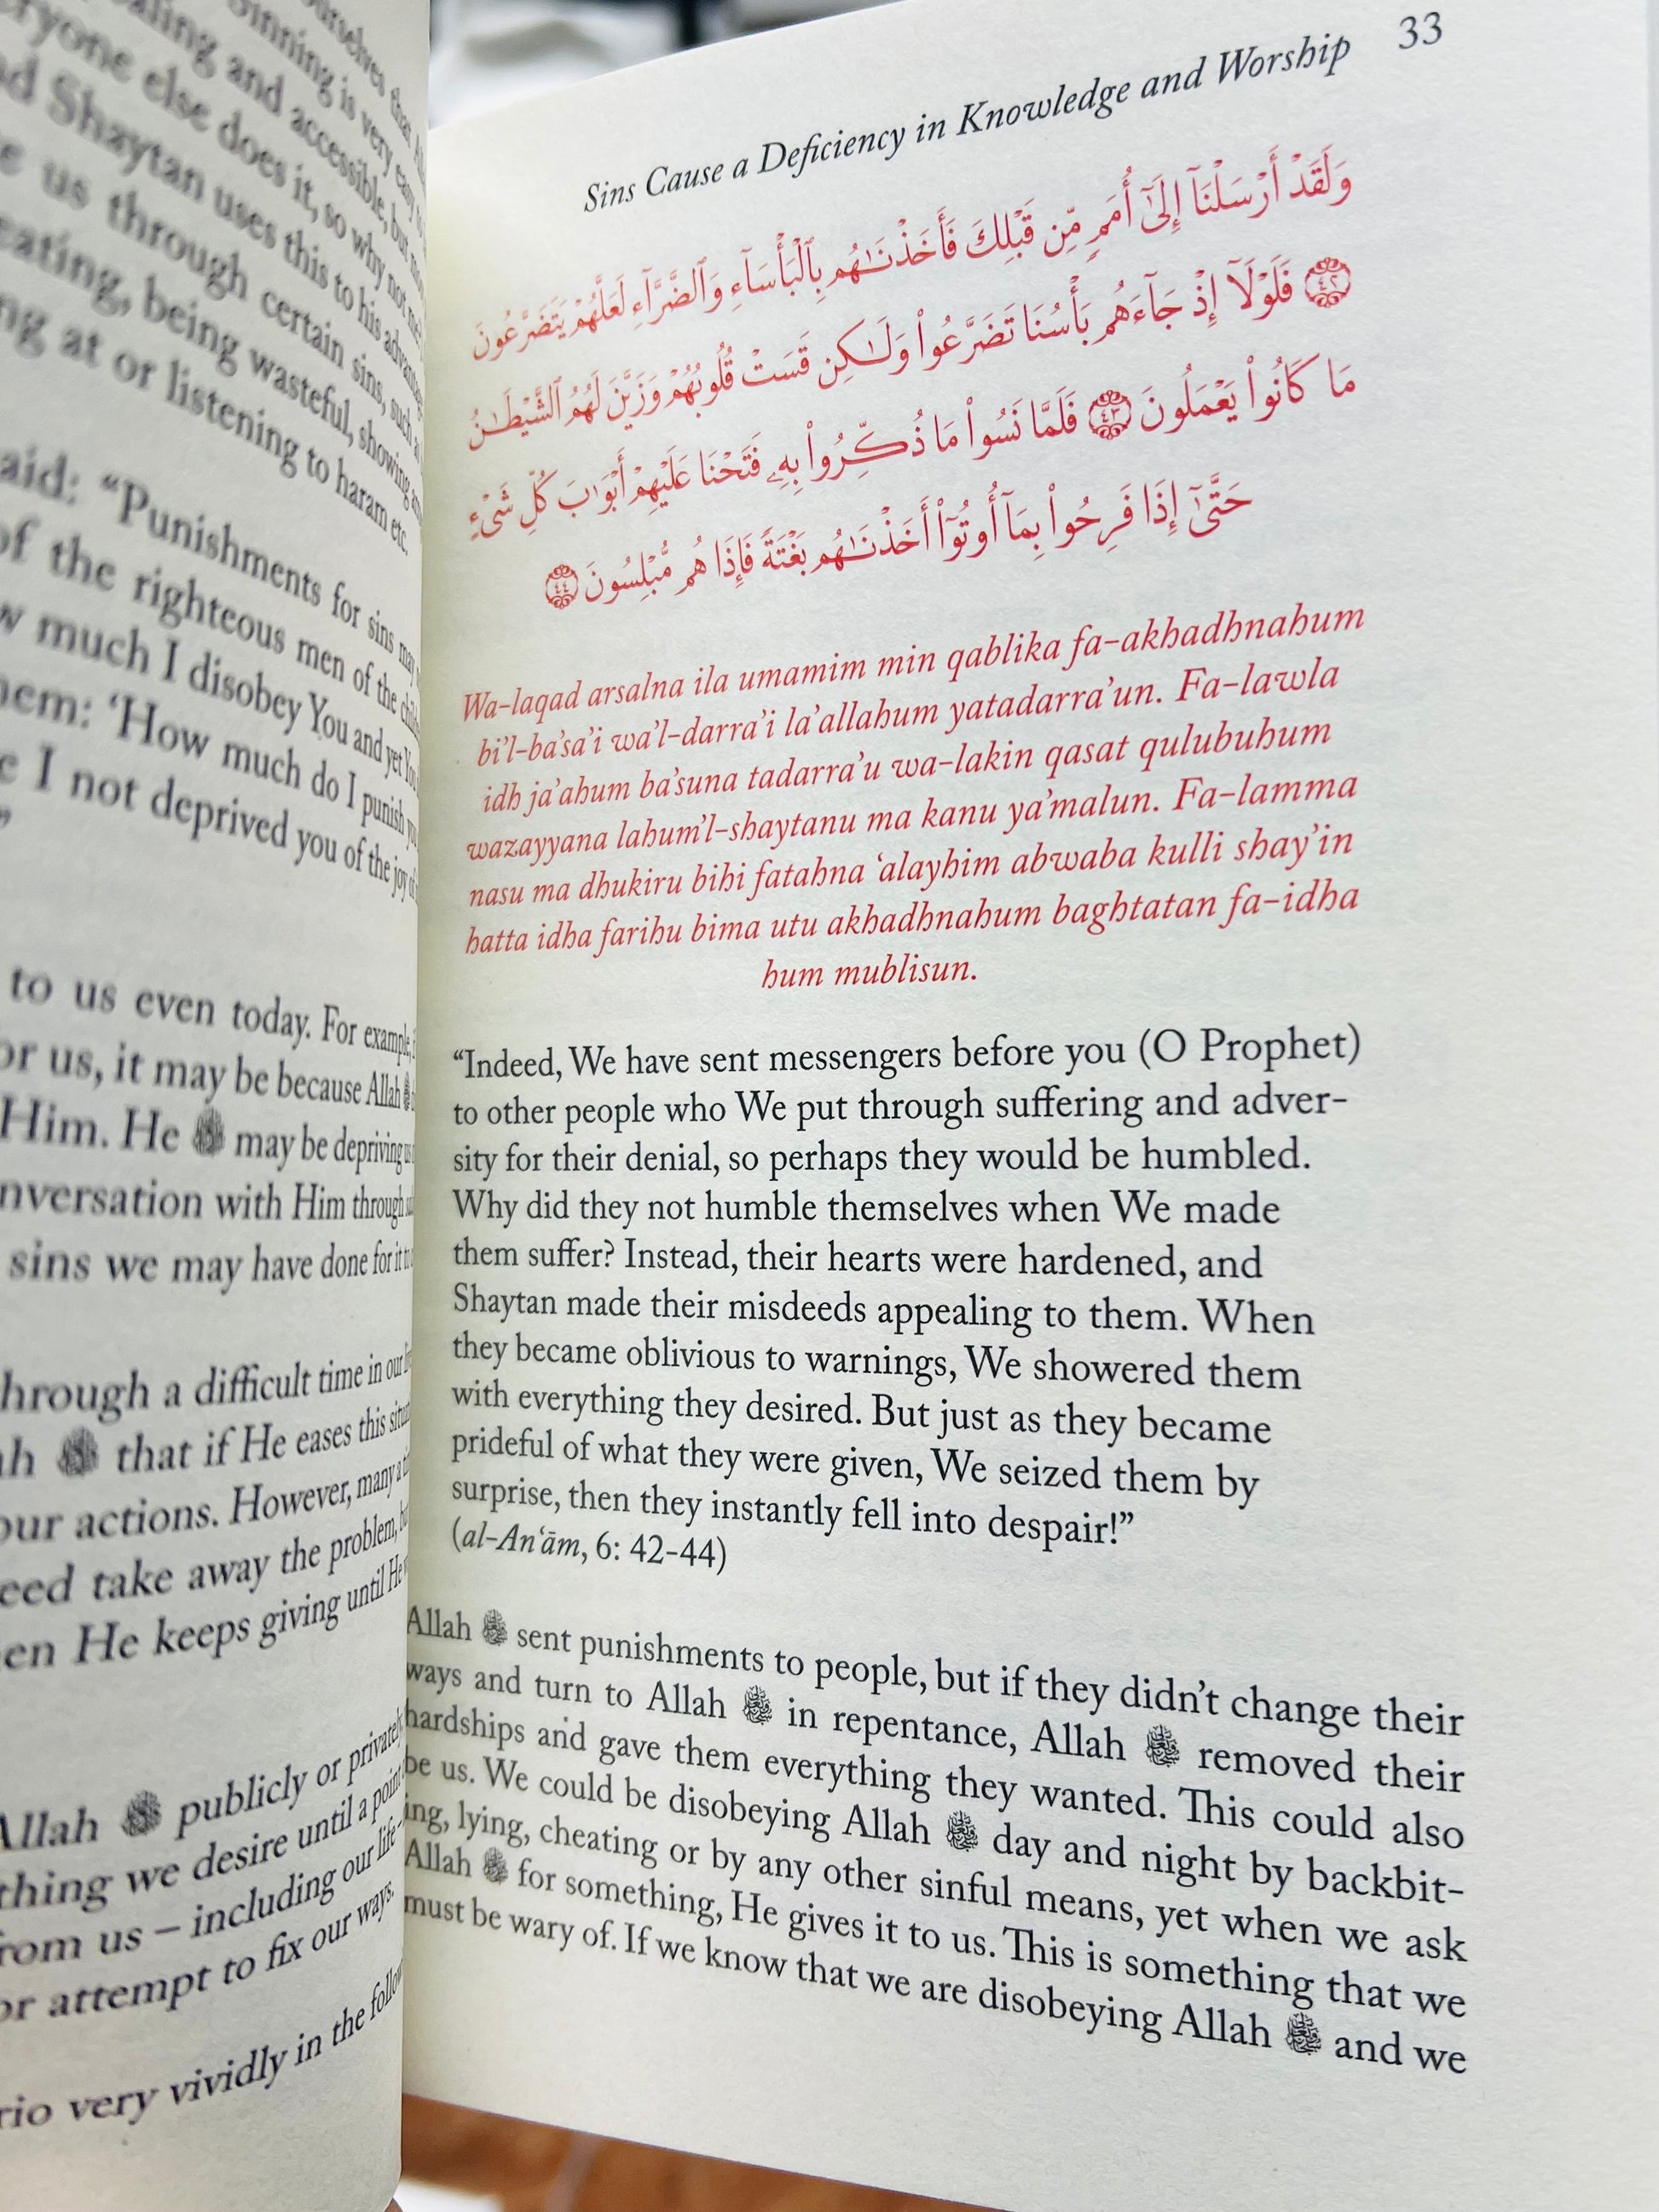 ourselves that
sinning is very easy
and accessible, but
everyone else does it, so why not me
Shaytan uses this to his
us through certain sins, such
eating, being wasteful, showing
at or listening to haram etc.
said: “Punishments for sins may
of the righteous men of the
much I disobey You and yet You
‘How much do I punish you
I not deprived you of the joy
”
to us even today. For example,
for us, it may be because Allah ﷻ
Him. He ﷻ may be depriving us
conversation with Him through
sins we may have done for it to
through a difficult time in our
ﷻ that if He eases this
our actions. However, many a
take away the problem,
He keeps giving until He
Allah ﷻ publicly or privately
thing we desire until a point
from us – including our life-
or attempt to fix our ways.
very vividly in the
Sins Cause a Deficiency in Knowledge and Worship 33
وَلَقَدْ أَرْسَلْنَآ إِلَىٰٓ أُمَمٍ مِّن قَبْلِكَ فَأَخَذْنَـٰهُم بِٱلْبَأْسَآءِ وَٱلضَّرَّآءِ لَعَلَّهُمْ يَتَضَرَّعُونَ
﴿٤٢﴾ فَلَوْلَآ إِذْ جَآءَهُم بَأْسُنَا تَضَرَّعُوا۟ وَلَـٰكِن قَسَتْ قُلُوبُهُمْ وَزَيَّنَ لَهُمُ ٱلشَّيْطَـٰنُ
مَا كَانُوا۟ يَعْمَلُونَ ﴿٤٣﴾ فَلَمَّا نَسُوا۟ مَا ذُكِّرُوا۟ بِهِۦ فَتَحْنَا عَلَيْهِمْ أَبْوَٰبَ كُلِّ شَىْءٍ
حَتَّىٰٓ إِذَا فَرِحُوا۟ بِمَآ أُوتُوٓا۟ أَخَذْنَـٰهُم بَغْتَةً فَإِذَا هُم مُّبْلِسُونَ ﴿٤٤﴾
Wa-laqad arsalna ila umamim min qablika fa-akhadhnahum
bi’l-ba’sa’i wa’l-darra’i la’allahum yatadarra’un. Fa-lawla
idh ja’ahum ba’suna tadarra’u wa-lakin qasat qulubuhum
wazayyana lahum’l-shaytanu ma kanu ya’malun. Fa-lamma
nasu ma dhukiru bihi fatahna ‘alayhim abwaba kulli shay’in
hatta idha farihu bima utu akhadhnahum baghtatan fa-idha
hum mublisun.
“Indeed, We have sent messengers before you (O Prophet)
to other people who We put through suffering and adver-
sity for their denial, so perhaps they would be humbled.
Why did they not humble themselves when We made
them suffer? Instead, their hearts were hardened, and
Shaytan made their misdeeds appealing to them. When
they became oblivious to warnings, We showered them
with everything they desired. But just as they became
prideful of what they were given, We seized them by
surprise, then they instantly fell into despair!”
(al-An‘ām, 6: 42-44)
Allah ﷻ sent punishments to people, but if they didn’t change their
ways and turn to Allah ﷻ in repentance, Allah ﷻ removed their
hardships and gave them everything they wanted. This could also
be us. We could be disobeying Allah ﷻ day and night by backbit-
ing, lying, cheating or by any other sinful means, yet when we ask
Allah ﷻ for something, He gives it to us. This is something that we
must be wary of. If we know that we are disobeying Allah ﷻ and we